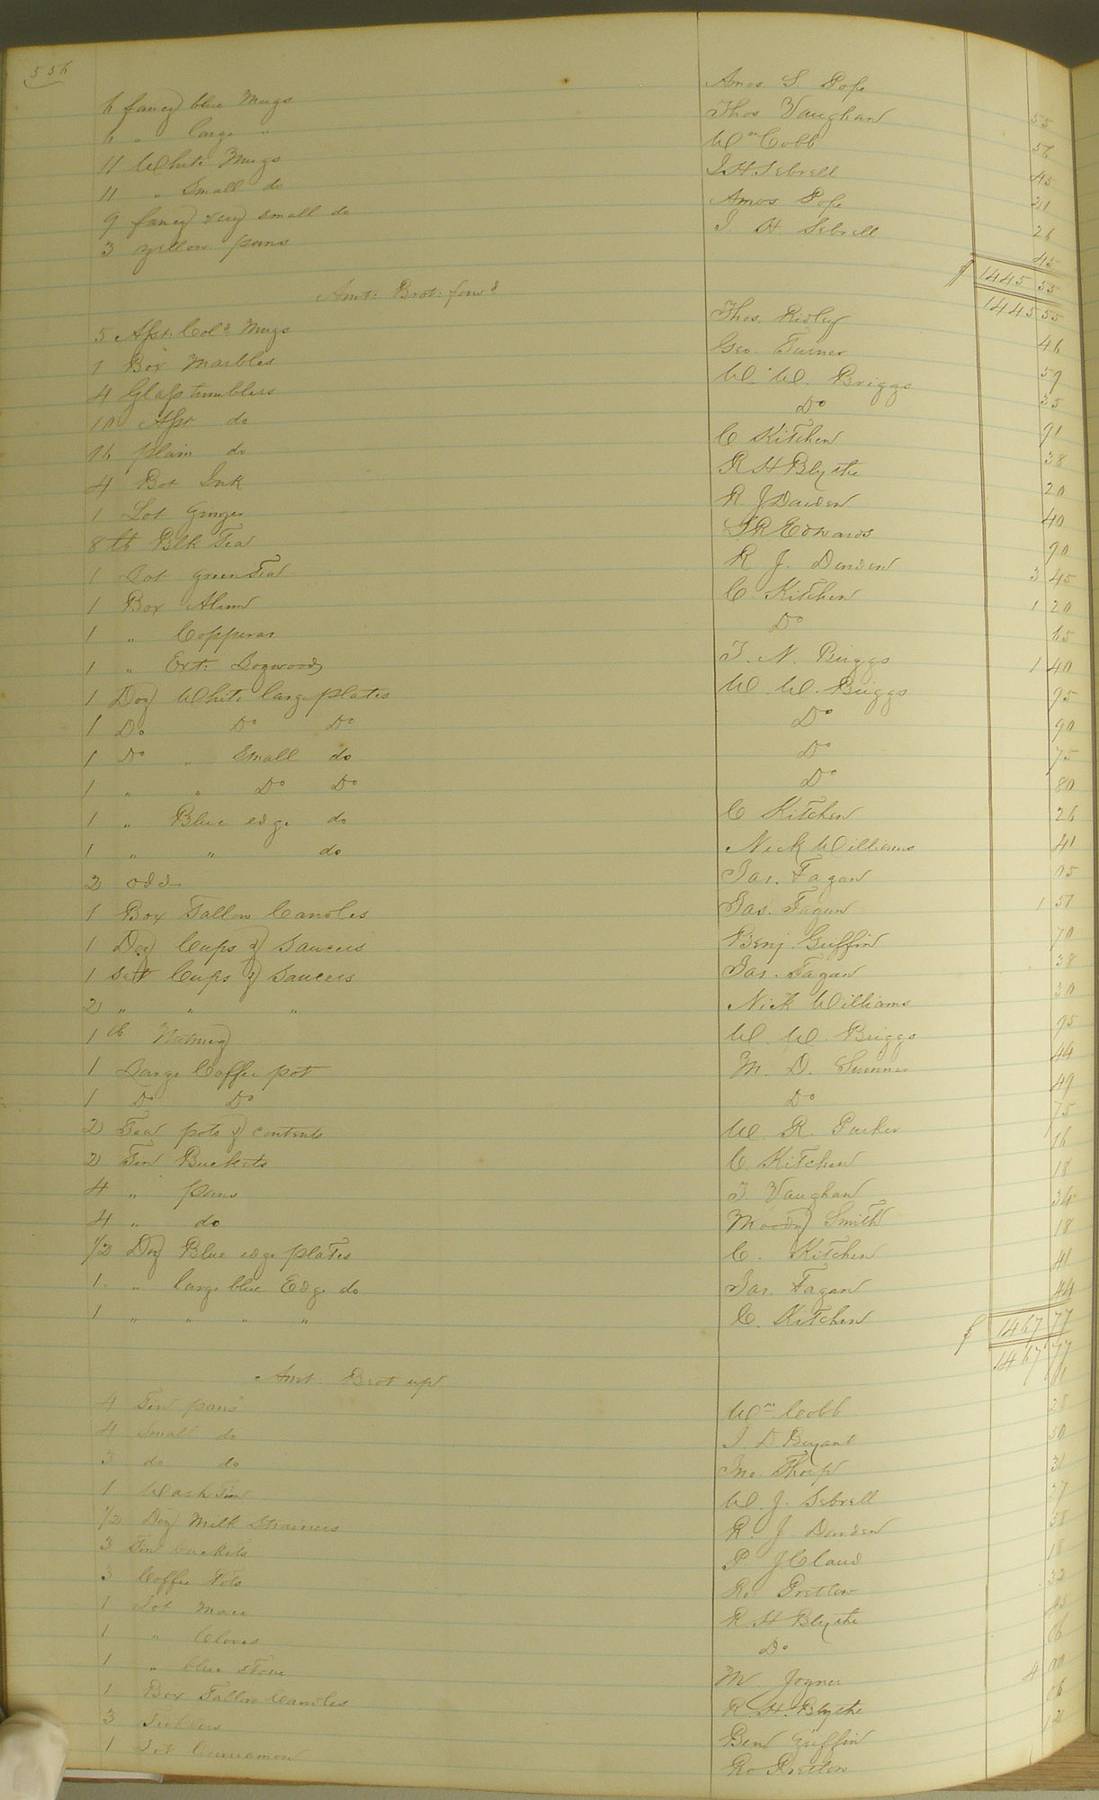 556
6 fancy blue Mugs Amos S Pope 55
6 " large " Thos Vaughan 56
11 White Mugs Wm Cobb 45
11 " Small do J. H. Sebrell 21
9 fancy very small do Amos Pope 26
3 yellow pans J H Sebrell 45
$ 1445 55
Amt: Brot: forwd 1445 55
5 Asst. Cold Mugs Thos. Ridley 46
1 Box Marbles Geo Turner 59
4 Glass tumblers W. W. Briggs 25
10 Asst do Do 91
16 plain do C Kitchen 38
4 Bot Ink R H Blythe 20
1 Lot Ginger R J Darden 40
8 lb Blk Tea J R Edwards 90
1 Lot green Tea R J. Darden 3 45
1 Box Alum C Kitchen 1 20
1 " Copperas Do 65
1 " Ext: Logwood J. N. Briggs 1 40
1 Doz White large plates W W. Briggs 95
1 Do Do Do Do 90
1 Do " Small do Do 75
1 " " Do Do Do 80
1 " Blue edge do C Kitchen 26
1 " " do Nick Williams 41
2 odd Jas. Fagan 05
1 Box Tallow Candles Jas. Fagan 1 51
1 Doz Cups & Saucers Benj. Griffin 70
1 Sett Cups & Saucers Jas. Fagan 38
2 " " " Nick Williams 30
1 lb Nutmeg W. W. Briggs 95
1 Large Coffee pot M. D. Sumner 44
1 Do Do Do 49
2 Tea pots & contents W. R. Parker 75
2 Tin Buckets C Kitchen 16
4 " pans J. Vaughan 18
4 " do Moody Smith 34
1/2 Doz Blue edge plates C. Kitchen 18
1 " large blue Edge do Jas. Fagan 41
1 " " " " C. Kitchen 44
$ 1467 77
Amt Brot up 1467 77
4 Tin pans Wm Cobb
4 Small do J. D Bryant 28
3 do do Jno. Thorp 50
1 Wash W. J. Sebrell 31
1/2 Doz Milk Strainers R. J Darden 27
3 Tin buckets P. J Claud 38
3 Coffee Pots Ro Pretlow 18
1 Lot Mace R H Blythe 32
1 " Cloves Do
1 " blue stone M Joyner
1 Box Tallow Candles R. H. Blythe 4 00
3 Ben Griffin
1 Lot Cinnamon Ro Pretlow